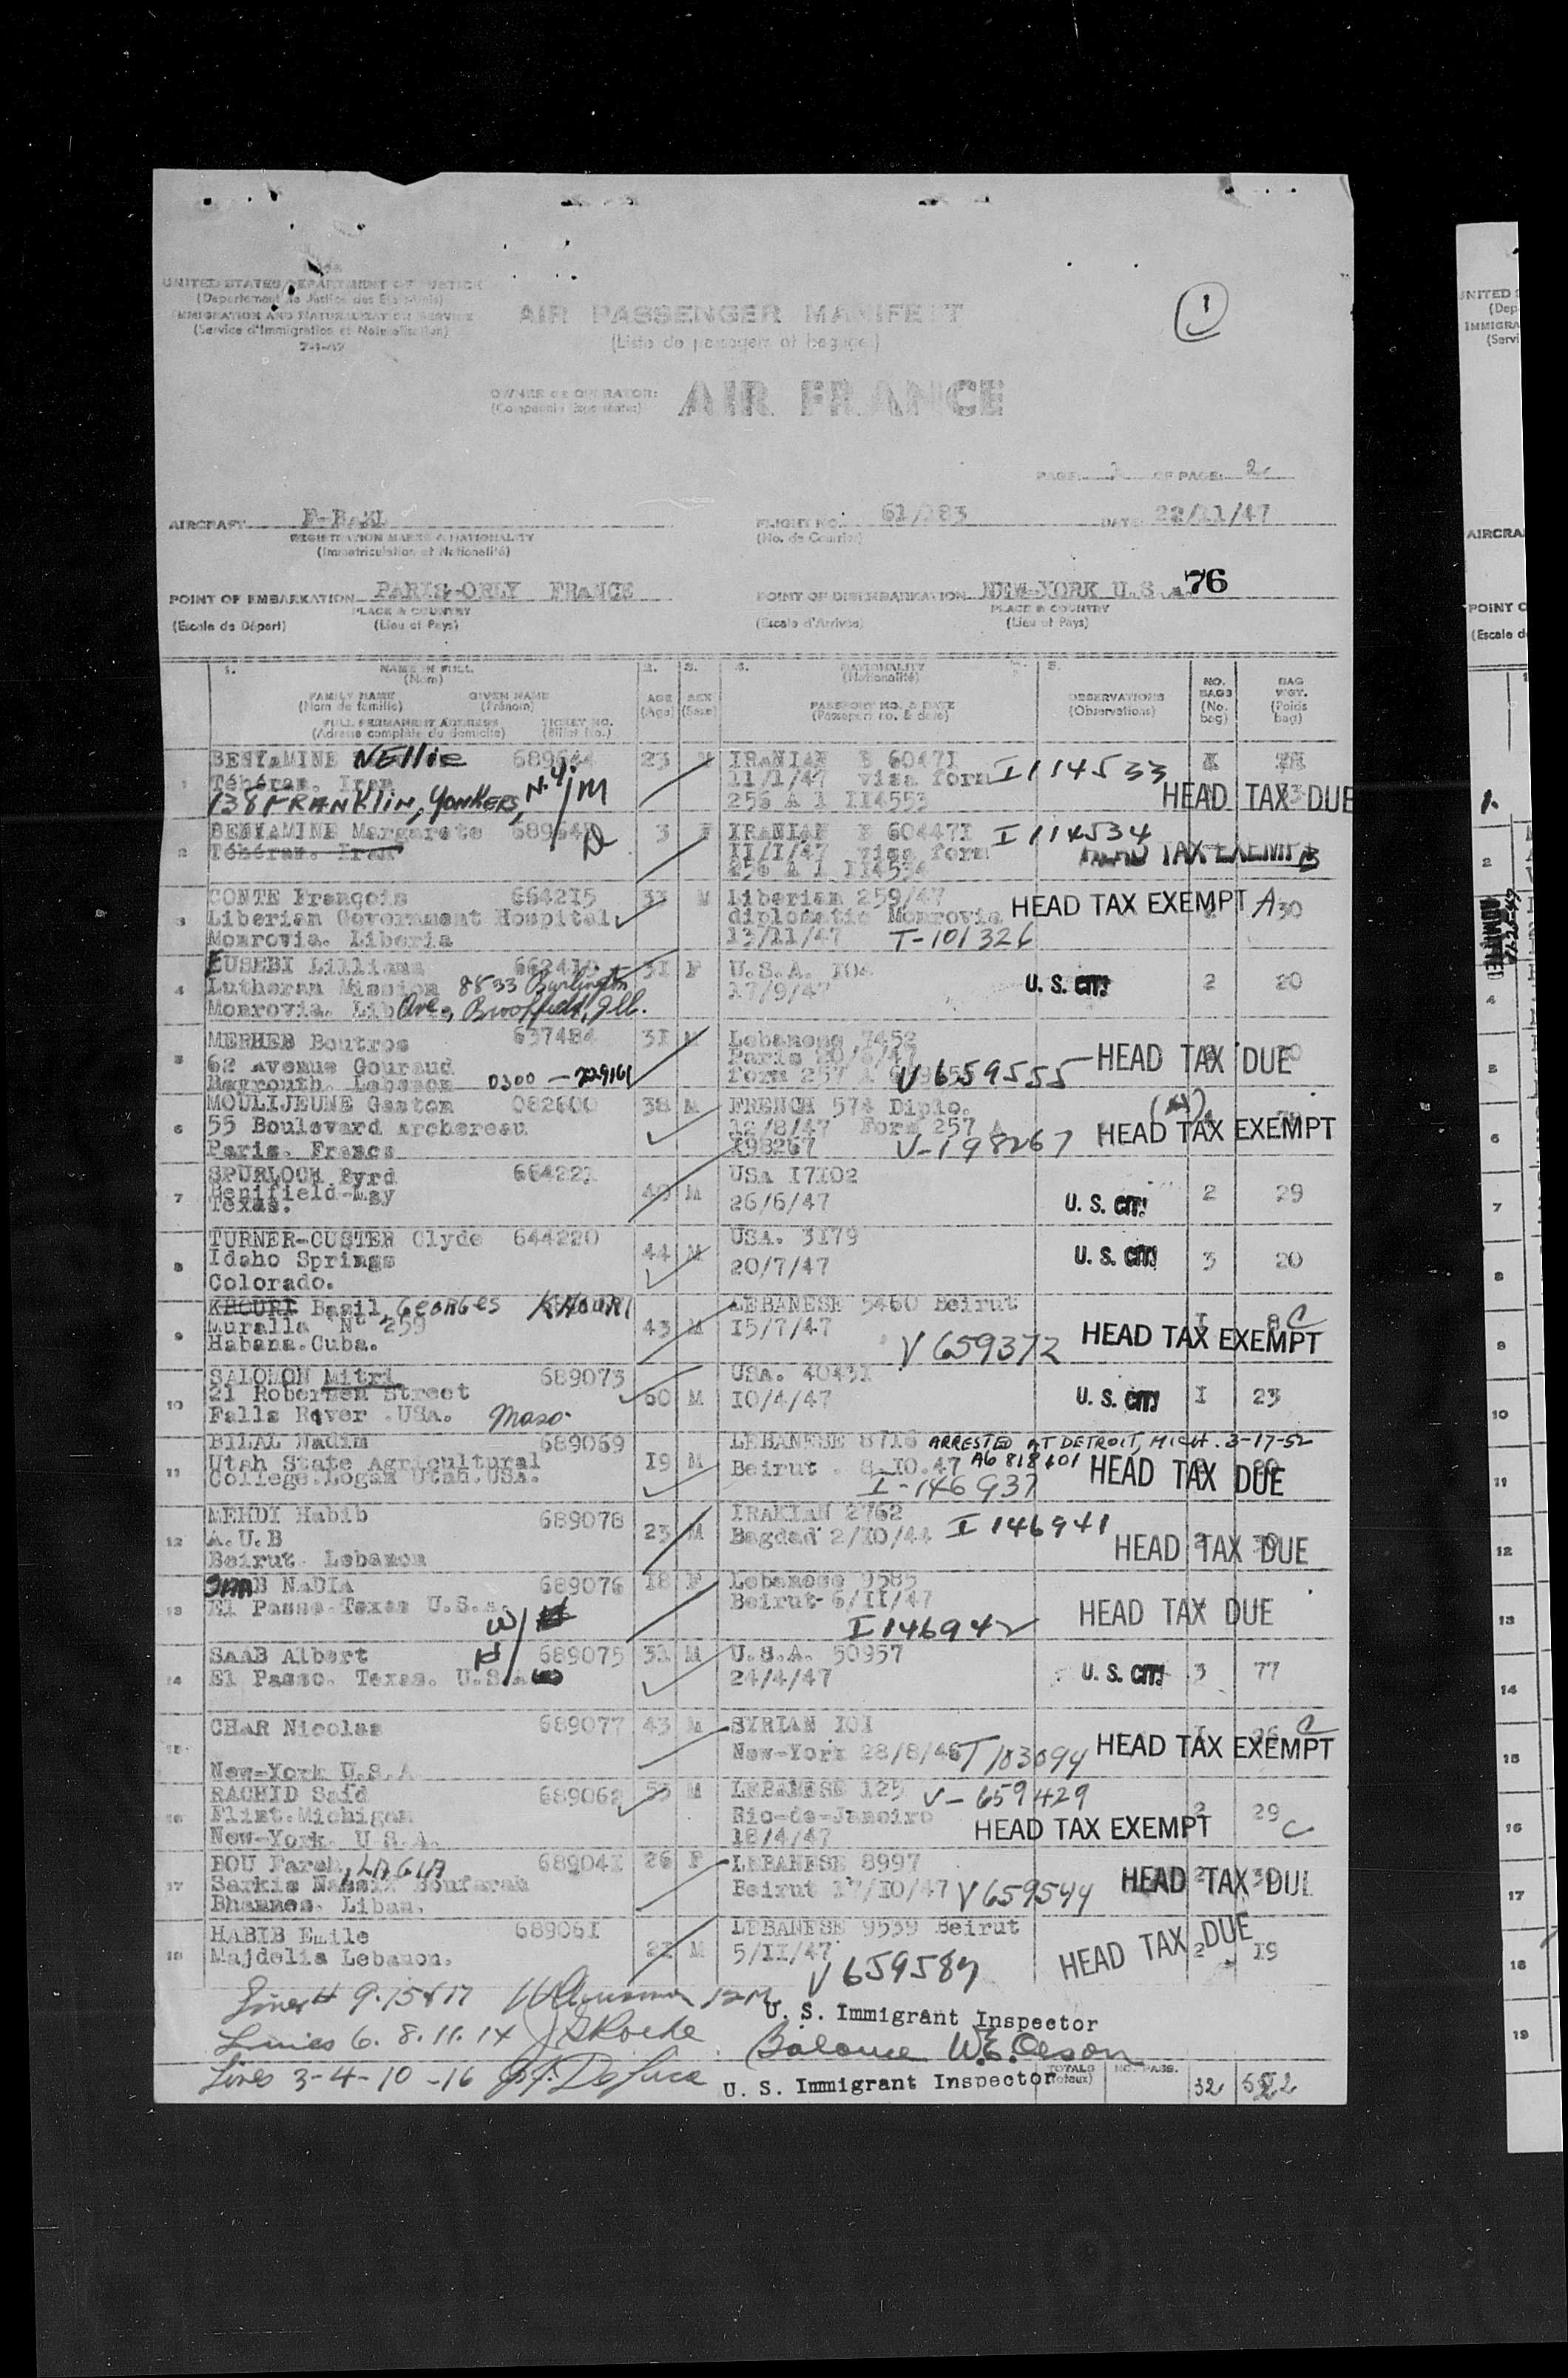 UNITED STATES DEPARTMENT OF JUSTICE
(Departement de Justice des Etats-Unis)
IMMIGRATION AND NATURALIZATION SERVICE
(Service d'Immigration et Naturalisation)
7-1-47
AIR PASSENGER MANIFEST
(Liste de passagers et bagages)
1
OWNER or OPERATOR:
AIR FRANCE
PAGE: OF PAGE: 2
AIRCRAFT F-BAZL
REGISTRATION MARKS & NATIONALITY
(Immatriculation et Nationalité)
FLIGHT NO. 61/283 DATE 22/11/47
(No. de Courrier)
POINT OF EMBARKATION PARIS-ORLY FRANCE
PLACE & COUNTRY
(Escale de Départ) (Lieu et Pays)
POINT OF DISEMBARKATION NEW-YORK U.S.A. 76
PLACE & COUNTRY
(Escale d'Arrivée) (Lieu et Pays)
1. NAME IN FULL 2. 3. 4. NATIONALITY 5.
(Nom) (Nationalité)
FAMILY NAME GIVEN NAME AGE SEX PASSPORT NO. & DATE OBSERVATIONS NO. BAGS BAG WGT.
(Nom de famille) (Prénom) (Age) (Sexe) (Passeport no. & date) (Observations) (No. bag) (Poids bag)
FULL PERMANENT ADDRESS TICKET NO.
(Adresse complète du domicile) (Billet No.)
1 BENYAMINE NELLIE 689644 23 IRANIAN E 60471 I114533
Téhéran. Iran 11/1/47 visa form
138 FRANKLIN, YONKERS, N.Y. /M 256 A 1 114553 HEAD TAX DUE
2 BENYAMINE Margarete 3 F IRANIAN E 60447I I114534
Téhéran. Iran II/I/47 visa form HEAD TAX EXEMPT B
256 A 1 114534
3 CONTE François 664215 33 M Liberian 259/47 HEAD TAX EXEMPT A 30
Liberian Government Hospital diplomatic Monrovia
Monrovia. Liberia 13/11/47 T-101326
4 EUSEBI Lilliana 31 F U.S.A. 104 U. S. CIT. 2 20
Lutheran Mission 8533 Burlington 17/9/47
Monrovia. Lib Ave, Brookfield, Ill.
5 MERHEB Boutros 637484 31 M Lebanese 7452 HEAD TAX DUE
62 Avenue Gouraud Paris
Beyrouth. Lebanon 0300 - 729161 form 257 V 659555
6 MOULIJEUNE Gaston 082600 38 M FRENCH 574 Diplo.
55 Boulevard Arcbereau 12/8/47 Form 257 A HEAD TAX EXEMPT
Paris. France I98267 V-198267
7 SPURLOCK Byrd 664221 40 M USA I7I02 U. S. CIT. 2 29
Benifield-May 26/6/47
Texas.
8 TURNER-CUSTER Clyde 644220 44 M USA. 3I79 U. S. CIT. 3 20
Idaho Springs 20/7/47
Colorado.
9 KHOURI Basil GEORGES KHOURI 43 M LEBANESE 5460 Beirut I 8 C
Muralla N° 259 I5/7/47 HEAD TAX EXEMPT
Habana.Cuba. V 659372
10 SALOMON Mitri 689073 60 M USA. 4043I U. S. CIT. I 23
21 Robertsen Street I0/4/47
Falls River .USA. Mass.
11 BILAL Nadim 689069 I9 M LEBANESE 8716 ARRESTED AT DETROIT, MICH. 3-17-52
Utah State Agricultural Beirut . 8.I0.47 A6 818601 HEAD TAX DUE
College.Logan Utah.USA. I-146937
12 MEHDI Habib 689078 23 M IRAKIAN 2762 I 146941
A.U.B Bagdad 2/I0/44 HEAD TAX DUE
Beirut. Lebanon
13 SAAB NADIA 689076 I8 F Lebanese 9585
El Passo.Texas U.S.A. W/ Beirut 6/II/47 HEAD TAX DUE
I146942
14 SAAB Albert 689075 31 M U.S.A. 50957 U. S. CIT. 3 77
El Passo. Texas. U.S.A. H/ 24/4/47
15 CHAR Nicolas 689077 43 M SYRIAN I0I I 26 C
New-York U.S.A New-York 28/8/46 T103094 HEAD TAX EXEMPT
16 RACHID Saïd 689062 53 M LEBANESE 125 V-659429 2 29 C
Flint.Michigan Rio-de-Janeiro HEAD TAX EXEMPT
New-York. U.S.A. 18/4/47
17 BOU Farah, LAGIA 68904I 26 F LEBANESE 8997 HEAD TAX DUE
Sarkis Nassix Boufarah Beirut 17/10/47 V659544
Bhannes. Liban.
18 HABIB Emile 68906I 21 M LEBANESE 9539 Beirut HEAD TAX DUE
Majdelia Lebanon. 5/II/47 V659587 2 I9
Lines 6. 8. 11. 14
U. S. Immigrant Inspector
W.E. Olson
Lines 3-4-10-16
U. S. Immigrant Inspector TOTALS NO. PASS. 32
UNITED
IMMIGRA
(Servi
AIRCRA
POINT O
(Escale d
1.
2
ADMITTED
4
5
6
7
8
9
10
11
12
13
14
15
16
17
18
19